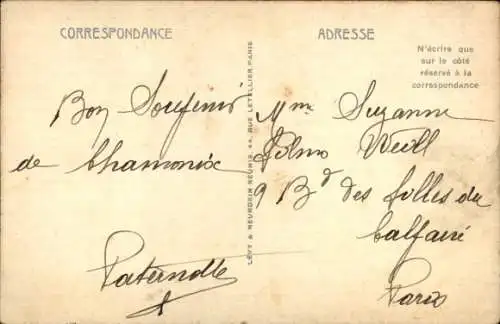 CORRESPONDANCE
ADRESSE
N'écrire que
sur le côté
réservé à la
correspondance
Bon Soufenir
de Chamonix
Mme Suzanne
Films Weill
9 Bd des filles du
Calfaire
Paris
LEVY & NEURDEIN REUNIS 44, RUE LETELLIER, PARIS